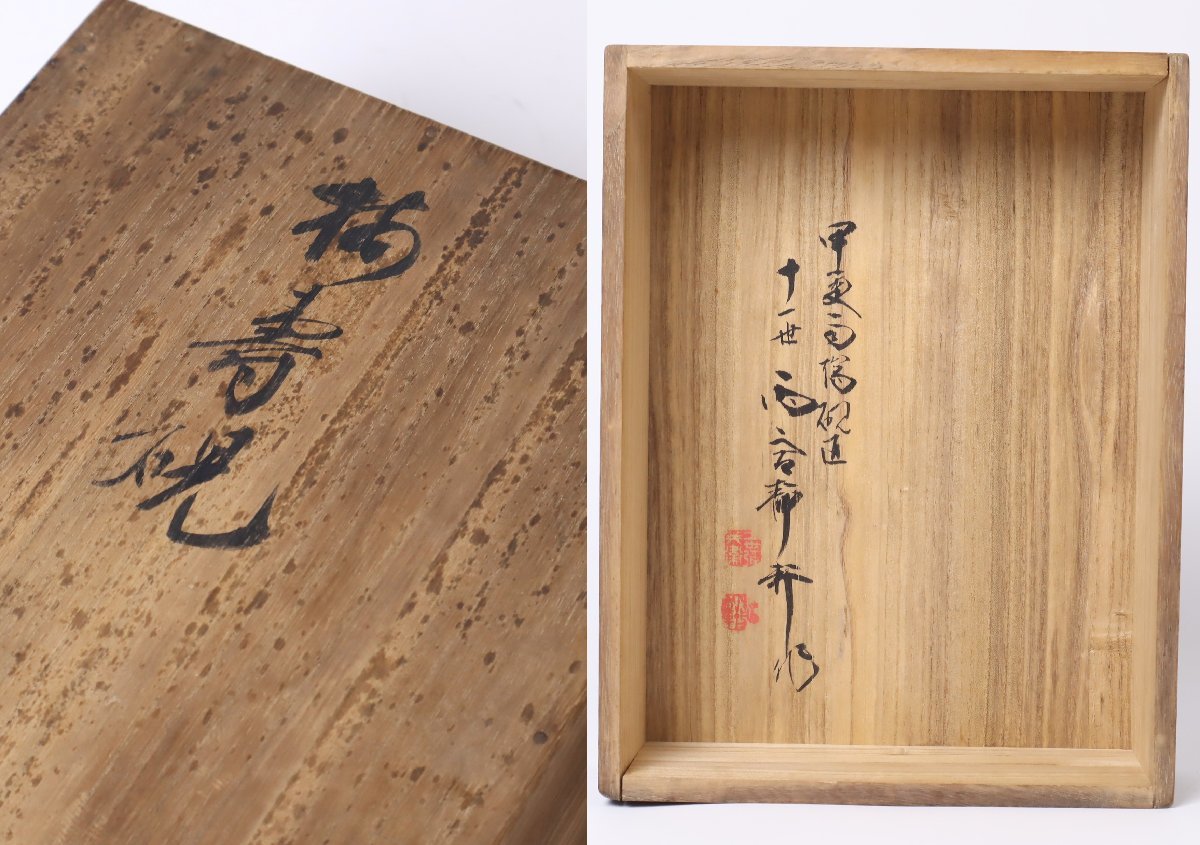 寿硯
甲斐雨端硯匠
十一世 雨宮静軒作